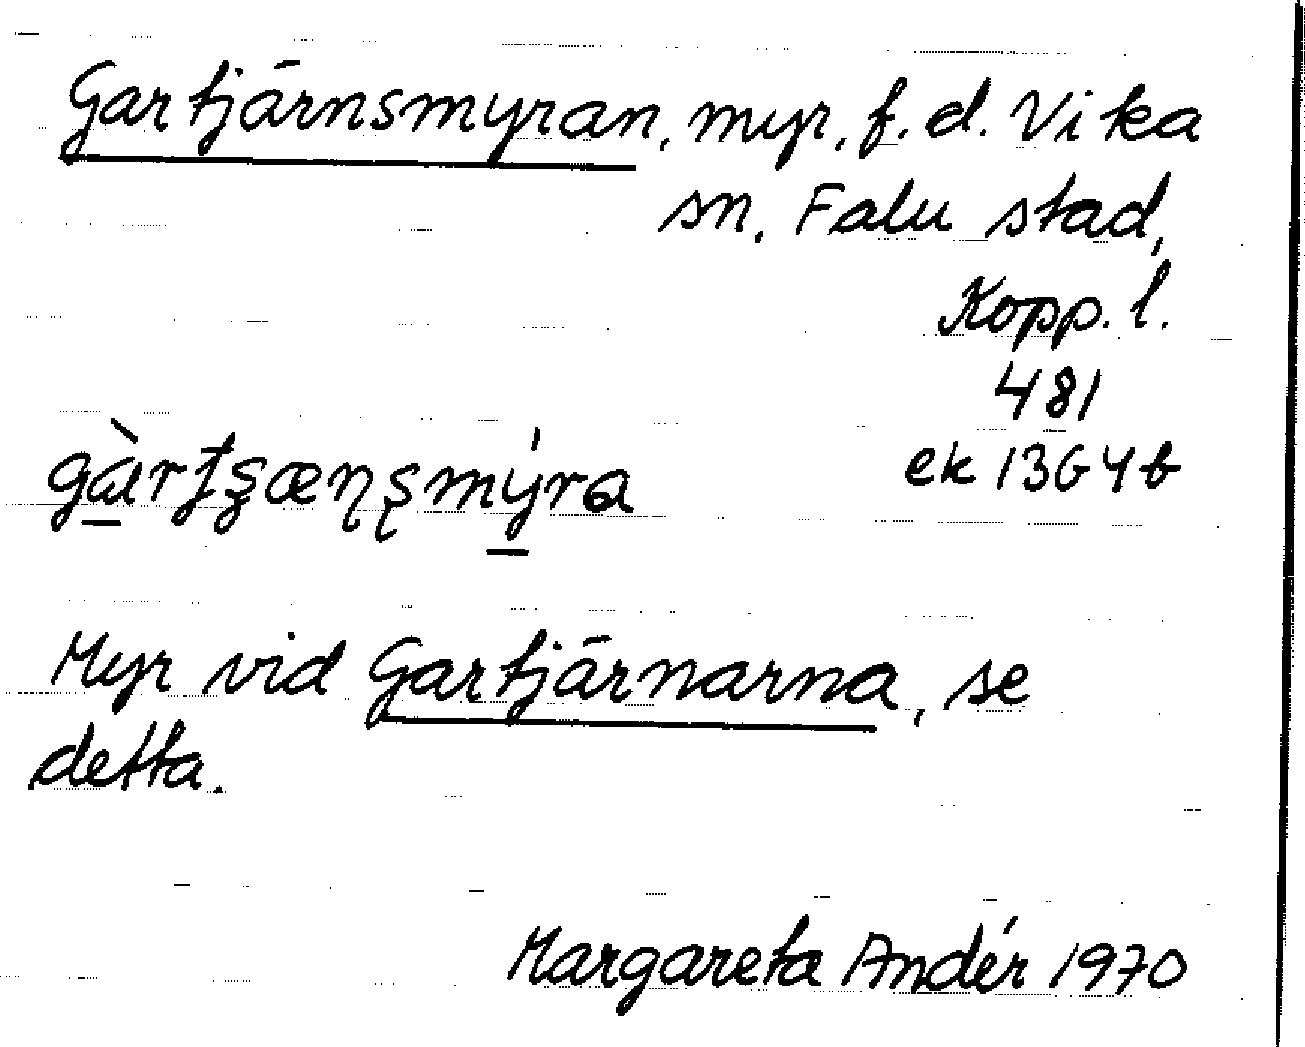 Gartjärnsmyran, myr, f.d. Vika
sn, Falu stad,
Kopp. l.
481
ek 13G4b
gàrʈʂæɳʂmýra
Myr vid Gartjärnarna, se
detta.
Margareta Andér 1970